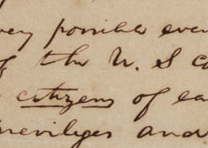 very possible eve
of the U. S co
citizens of ea
privileges and